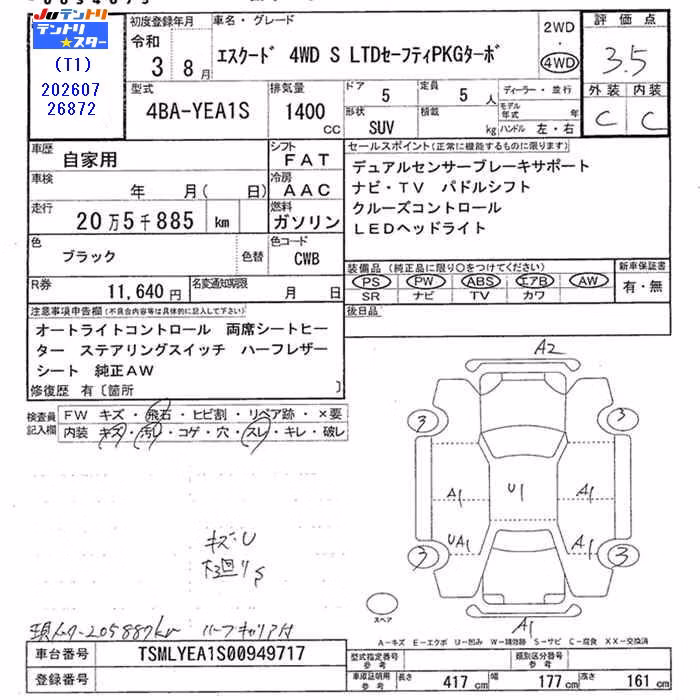 Juテントリ
テントリ★スター
(T1)
202607
26872
初度登録年月
令和
3 8月
車名・グレード
エスクード 4WD S LTDセーフティPKGターボ
2WD
・
4WD
評価点
3.5
型式
4BA-YEA1S
排気量
1400
CC
ドア
5
定員
5 人
形状
SUV
積載
kg
ディーラー・並行
モデル年式 年
ハンドル 左・右
外装 内装
C C
車歴
自家用
シフト
FAT
車検
年 月( 日)
冷房
AAC
走行
20万5千885 km
燃料
ガソリン
色
ブラック
色替
色コード
CWB
R券
11,640円
名変通知期限
月 日
セールスポイント(正常に機能するものに限ります)
デュアルセンサーブレーキサポート
ナビ・TV パドルシフト
クルーズコントロール
LEDヘッドライト
装備品(純正品に限り○をつけてください)
PS PW ABS エアB AW
SR ナビ TV カワ
新車保証書
有・無
後日品
注意事項申告欄(不具合内容等は具体的に記入して下さい)
オートライトコントロール 両席シートヒー
ター ステアリングスイッチ ハーフレザー
シート 純正AW
修復歴 有〔箇所 〕
検査員
記入欄
FW キズ・飛石・ヒビ割・リペア跡・×要
内装 キズ・汚レ・コゲ・穴・スレ・キレ・破レ
A2
3 3
A1 U1 A1
UA1 A1
3 3
A1
スペア
キズ・U
下廻りS
現メーター205887km ルーフキャリア付
A-キズ E-エクボ U-凹み W-補修跡 S-サビ C-腐食 XX-交換済
車台番号
TSMLYEA1S00949717
登録番号
型式指定番号
参考
類別区分番号
参考
車庫証明用
参考
長さ 417 cm 幅 177 cm 高さ 161 cm